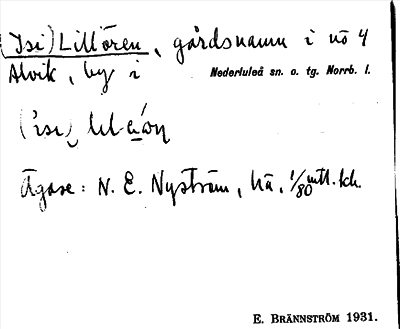 (Isi) Lillören, gårdsnamn i nö 4
Alvik, by i Nederluleå sn. o. tg. Norrb. l.
Ägare: N. E. Nyström, hä, 1/80 mtl. kh.
E. BRÄNNSTRÖM 1931.